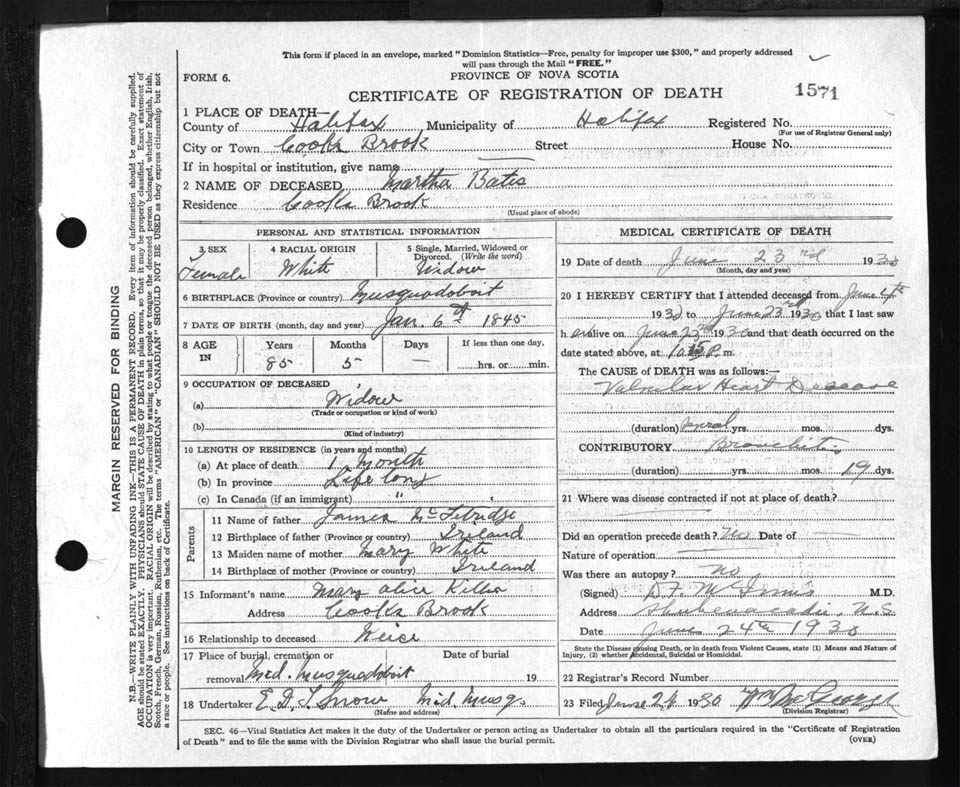 This form if placed in an envelope, marked "Dominion Statistics—Free, penalty for improper use $300," and properly addressed
will pass through the Mail "FREE."
FORM 6.
PROVINCE OF NOVA SCOTIA
CERTIFICATE OF REGISTRATION OF DEATH
1571
1 PLACE OF DEATH—
County of Halifax Municipality of Halifax Registered No.
(For use of Registrar General only)
City or Town Cooks Brook Street House No.
If in hospital or institution, give name
2 NAME OF DECEASED Martha Bates
Residence Cooks Brook
(Usual place of abode)
PERSONAL AND STATISTICAL INFORMATION
3 SEX 4 RACIAL ORIGIN 5 Single, Married, Widowed or
Divorced. (Write the word)
Female White Widow
6 BIRTHPLACE (Province or country) Musquodoboit
7 DATE OF BIRTH (month, day and year) Jan. 6th 1845
8 AGE IN Years Months Days If less than one day,
85 5 — hrs. or min.
9 OCCUPATION OF DECEASED
(a) Widow
(Trade or occupation or kind of work)
(b)
(Kind of industry)
10 LENGTH OF RESIDENCE (in years and months)
(a) At place of death 1 Month
(b) In province Life long
(c) In Canada (if an immigrant) "
Parents
11 Name of father James McFetridge
12 Birthplace of father (Province or country) Ireland
13 Maiden name of mother Mary White
14 Birthplace of mother (Province or country) Ireland
15 Informant's name Mary Alice Killen
Address Cooks Brook
16 Relationship to deceased Neice
17 Place of burial, cremation or Date of burial
removal Mid. Musquodoboit 19
18 Undertaker Snow Mid. Musq.
(Name and address)
MEDICAL CERTIFICATE OF DEATH
19 Date of death June 23rd 1930
(Month, day and year)
20 I HEREBY CERTIFY that I attended deceased from June 4th
1930 to June 23rd 1930 that I last saw
h er alive on June 23rd 1930 and that death occurred on the
date stated above, at 10.15 P. m.
The CAUSE of DEATH was as follows:—
Valvular Heart Disease
(duration) yrs. mos. dys.
CONTRIBUTORY Bronchitis
(duration) yrs. mos. 19 dys.
21 Where was disease contracted if not at place of death?
Did an operation precede death? No Date of —
Nature of operation
Was there an autopsy? no
(Signed) D.F. McInnis M.D.
Address Shubenacadie, N.S.
Date June 24th 1930
State the Disease causing Death, or in death from Violent Causes, state (1) Means and Nature of
Injury, (2) whether Accidental, Suicidal or Homicidal.
22 Registrar's Record Number
23 Filed June 26 1930
(Division Registrar)
SEC. 46—Vital Statistics Act makes it the duty of the Undertaker or person acting as Undertaker to obtain all the particulars required in the "Certificate of Registration
of Death" and to file the same with the Division Registrar who shall issue the burial permit.
(OVER)
MARGIN RESERVED FOR BINDING
N.B.—WRITE PLAINLY WITH UNFADING INK—THIS IS A PERMANENT RECORD. Every item of information should be carefully supplied.
AGE should be stated EXACTLY. PHYSICIANS should STATE CAUSE OF DEATH in plain terms, so that it may be properly classified. Exact statement of
OCCUPATION is very important. RACIAL ORIGIN will be described by stating to what people or tongue the deceased person belonged, whether English, Irish,
Scotch, French, German, Russian, Ruthenian, etc. The terms "AMERICAN" or "CANADIAN" SHOULD NOT BE USED as they express citizenship but not
a race or people. See instructions on back of Certificate.